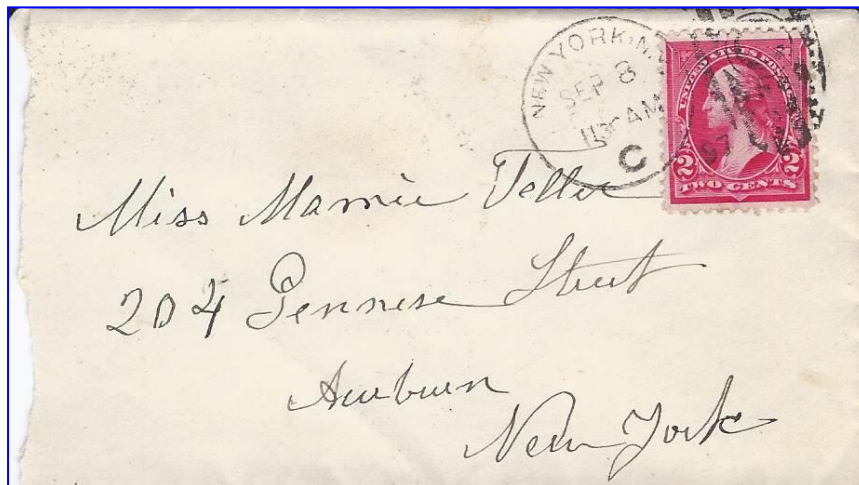 NEW YORK, N.Y.
SEP 8
1130 AM
97
C
UNITED STATES POSTAGE
2 2
TWO CENTS
Miss Mamie Teller
204 Gennese Street
Auburn
New York